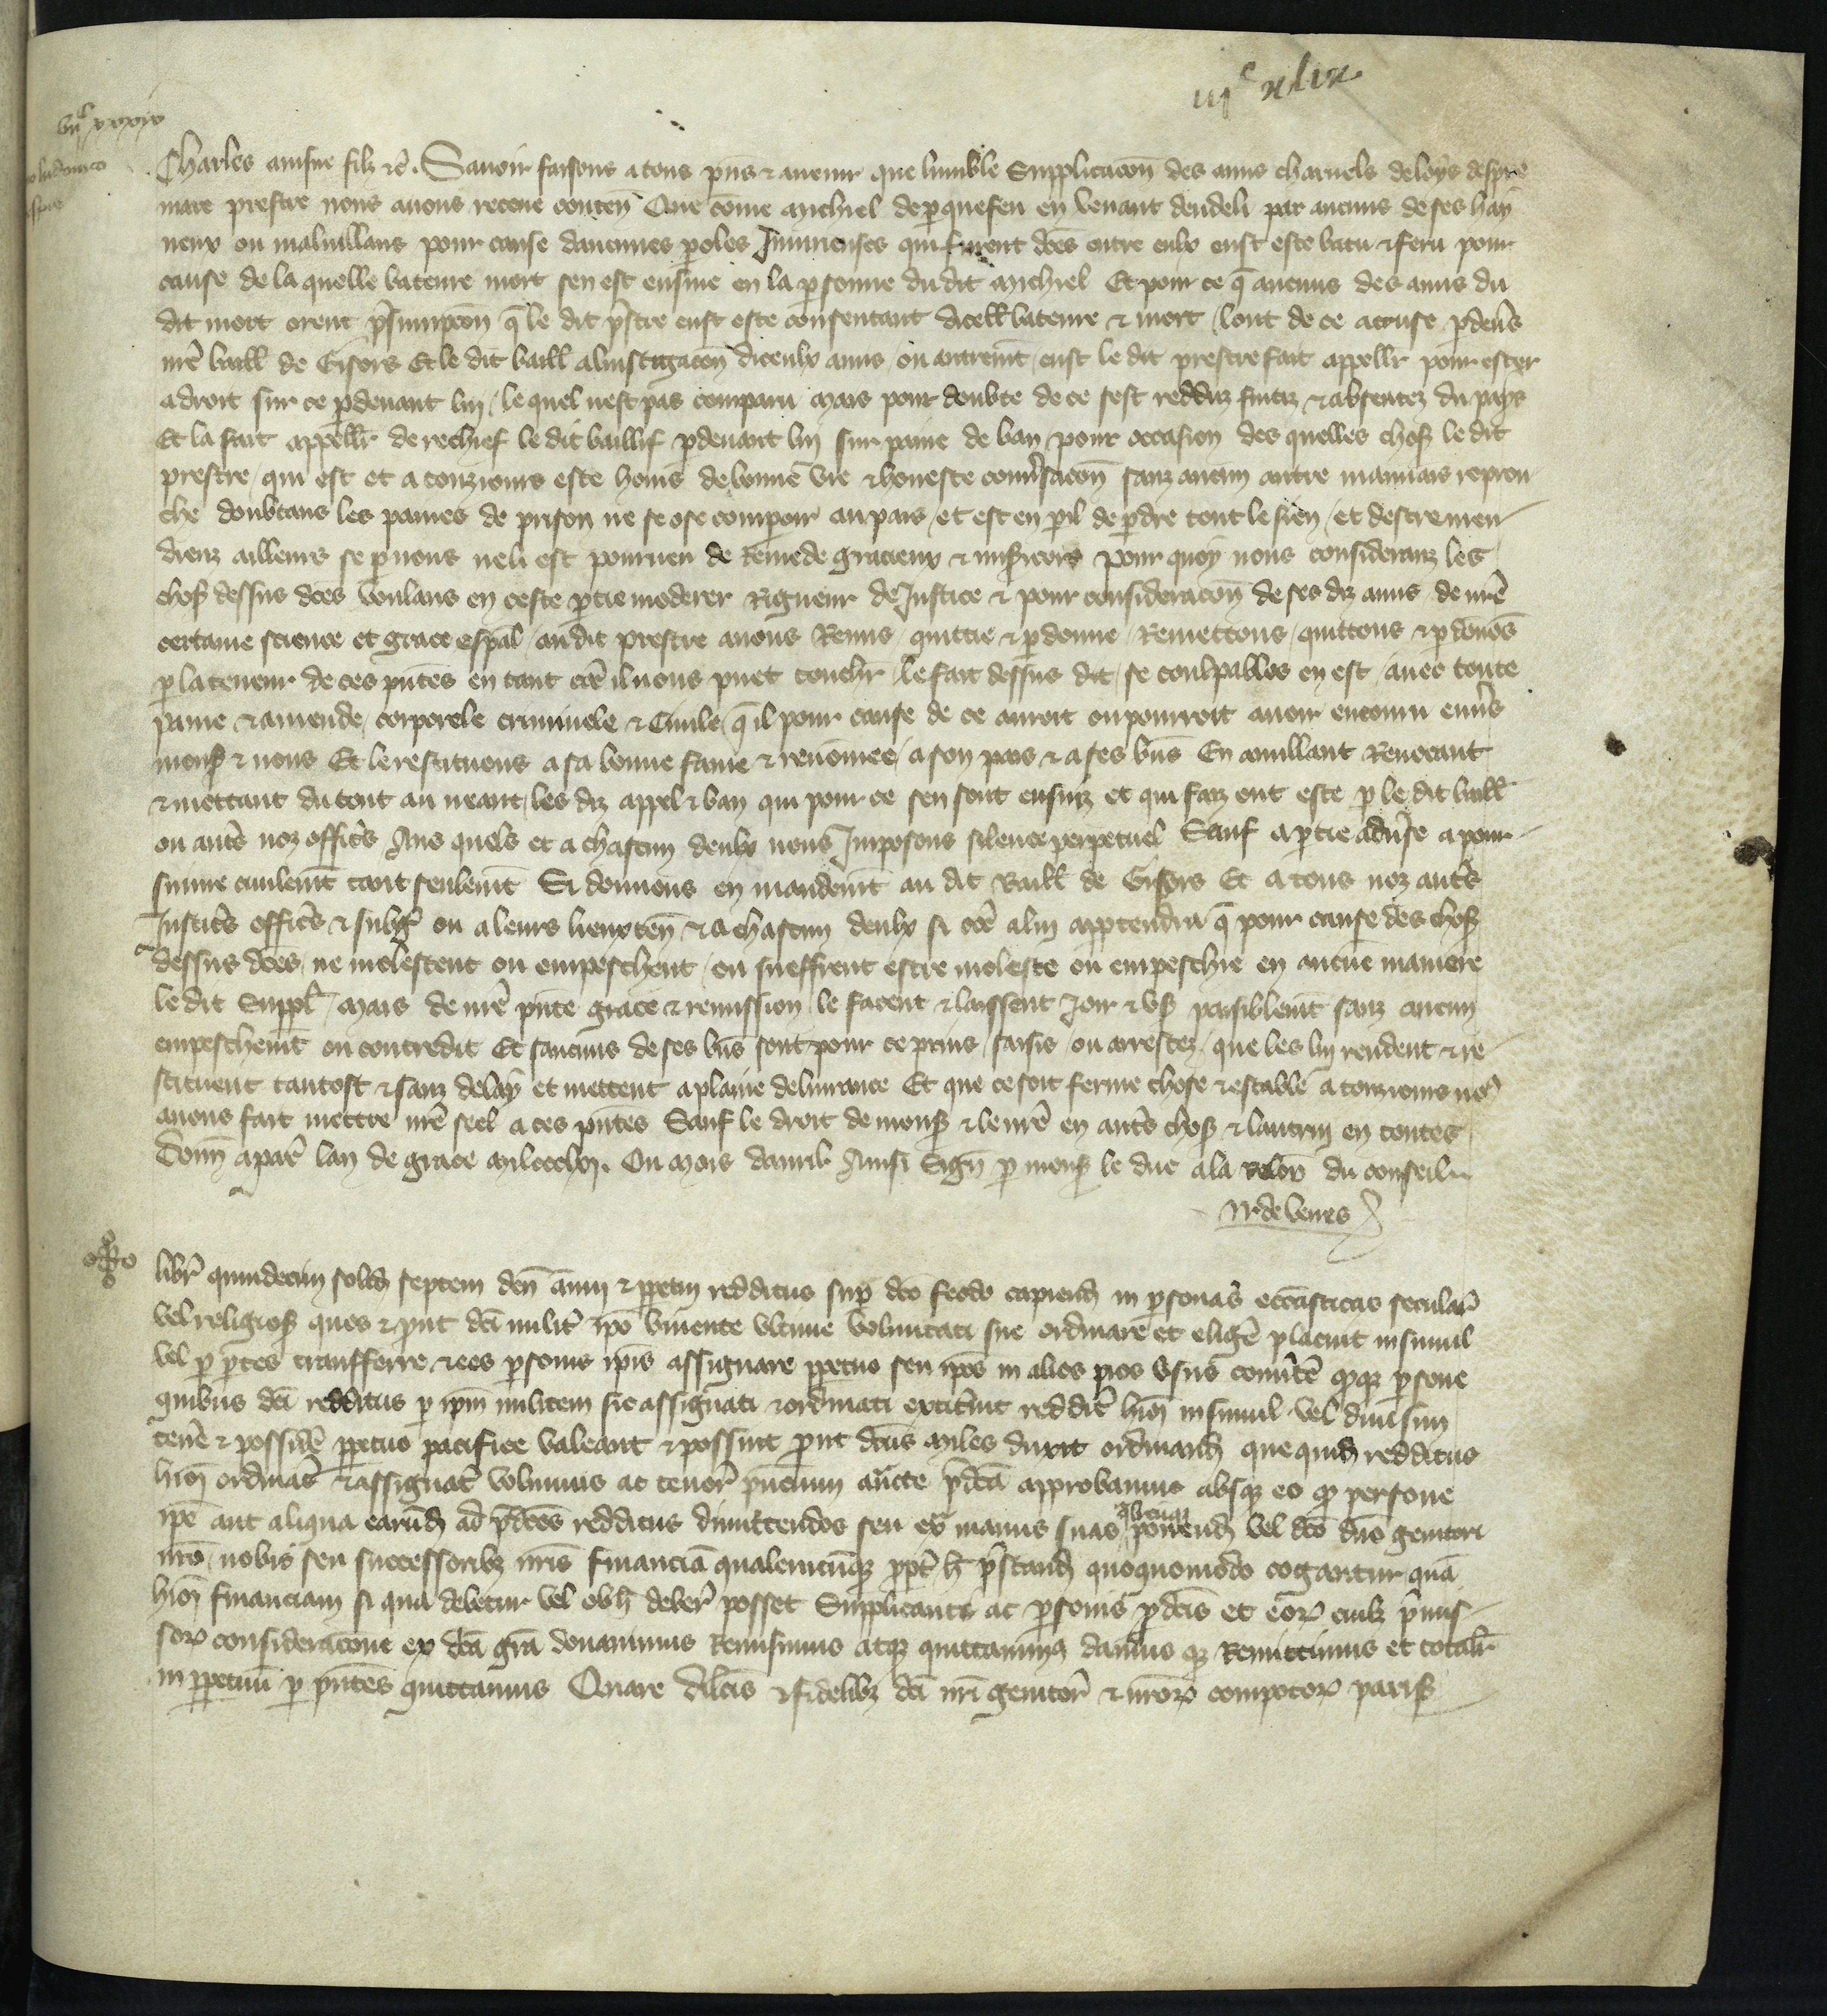 iijc xlix
vijc xxxix
ludovico
Charles ainsne filz etc. Savoir faisons a tous pns et avenir que lumble Supplicacon des amis charnels de loys
mare prestre nous avons receue conten Que come Michiel de perquefeu en venant dendeli par aucuns de ses hay
neux ou malvillans pour cause daucunes poles Iniurieuses qui furent does entre eulx eust este batu et feru pour
cause de la quelle bateure mort sen est ensuie en la psonne du dit Michiel Et pour ce q aucuns des amis du
dit mort orent psumpcon q le dit pstre eust este consentant dicell bateure et mort lont de ce accuse pdevs
nre baill de Gisors Et le dit baill a linstigacon diceulx amis ou autremt eust le dit prestre fait appellr pour ester
a droit sur ce pdevant luy le quel nest pas comparu Mais pour doubte de ce sest redduz fuitiz et absentez du pays
Et la fait appellr de rechief le dit baillif pdevant luy sur paine de ban pour occasion des quelles chos le dit
prestre qui est et a touziours este homs de bonne vie et honeste conversacon sanz aucun autre mauvais reprou
che doubtans les paines de prison ne se ose compoir au pais et est en pil de pdre tout le sien et destre men
dienz ailleurs se p nous ne li est pourveu de Remede gracieux et misicors pour quoy nous consideranz les
chos dessus does voulans en ceste ptie moderer Rigueur de Justice et pour consideracon de ses diz amis de nre
certaine science et grace espal au dit prestre avons Remis quittie et pdonne Remettons quittons et pdonos
p la teneur de ces pntes en tant coe il nous puet touchr le fait dessus dit se coulpables en est avec toute
paine et amende corporele criminele et Civile q il pour cause de ce auroit ou pourroit avoir encouru envs
mons et nous Et le restituons a sa bonne fame et renomee a son pais et a ses bns En anullant Revocant
et mettant du tout au neant les diz appel et ban qui pour ce sen sont ensuiz et qui faiz ont este p le dit baill
ou auts noz offics Aus quels et a chascun deulx nous Imposons silence perpetuel Sauf a ptie advse a pour
suivre civilemt tant seulemt Si donnons en mandemt au dit Baill de Gisors Et a tous noz auts
Justics offics et subgz ou a leurs lieuxten et a chascun deulx si coe a luy apptendra q pour cause des chos
dessus does ne molestent ou empeschent ou sueffrent estre moleste ou empeschie en aucune maniere
le dit Suppl Mais de nre pnte grace et remission le facent et laissent Joir et us paisiblemt sanz aucun
empeschemt ou contredit Et saucuns de ses bns sont pour ce prins saisis ou arrestez que les luy rendent et re
stituent tantost et sanz delay et mettent a plaine delivrance Et que ce soit ferme chose et estable a touziours no9
avons fait mettre nre seel a ces pntes Sauf le droit de mons et le nre en auts chos et lautruy en toutes
Donn a par lan de grace mil ccclvij. Ou mois davril Ainsi Sign p mons le duc a la relon du conseil
Ir de Venes
libr quindecim solid septem den annui et ppetui redditus sup dco feodo capiend in psonas ecclasticas secular
vel religios ques et put dci milit ipo vivente ultime voluntati sue ordinare et elige placuit insimul
vel p ptes transferre et eos psonis ipis assignare ppetuo seu ipos in alios pios usus convte quodque psone
quibus dci redditus p ipm militem sic assignati et ordinati extitint reddit huioi insimul vel divisim
tene et posside ppetuo pacifice valeant et possint put dcus Miles duxit ordinand quequid redditus
huioi ordinat et assignat volumus ac tenor pncium aucte pdca approbamus absque eo quod persone
ipe aut aliqua earud ad pdcos redditus dimittendos seu ex manus suas ponend vel dco dno genitori
nro nobis seu successoribz nris financia qualemcuque ppt h pstand quoquomodo cogantur qua
huioi financiam si qua debetur vel ob h deber posset Supplicantr ac psonis pdcis et eor cuilz pmis
sor consideracone ex dca gra donavimus Remisimus atque quittavimus damus que Remittimus et totalr
in ppetuu p pntes quittamus Quare dilcis et fidelibz dci nri genitor et nror compotor paris